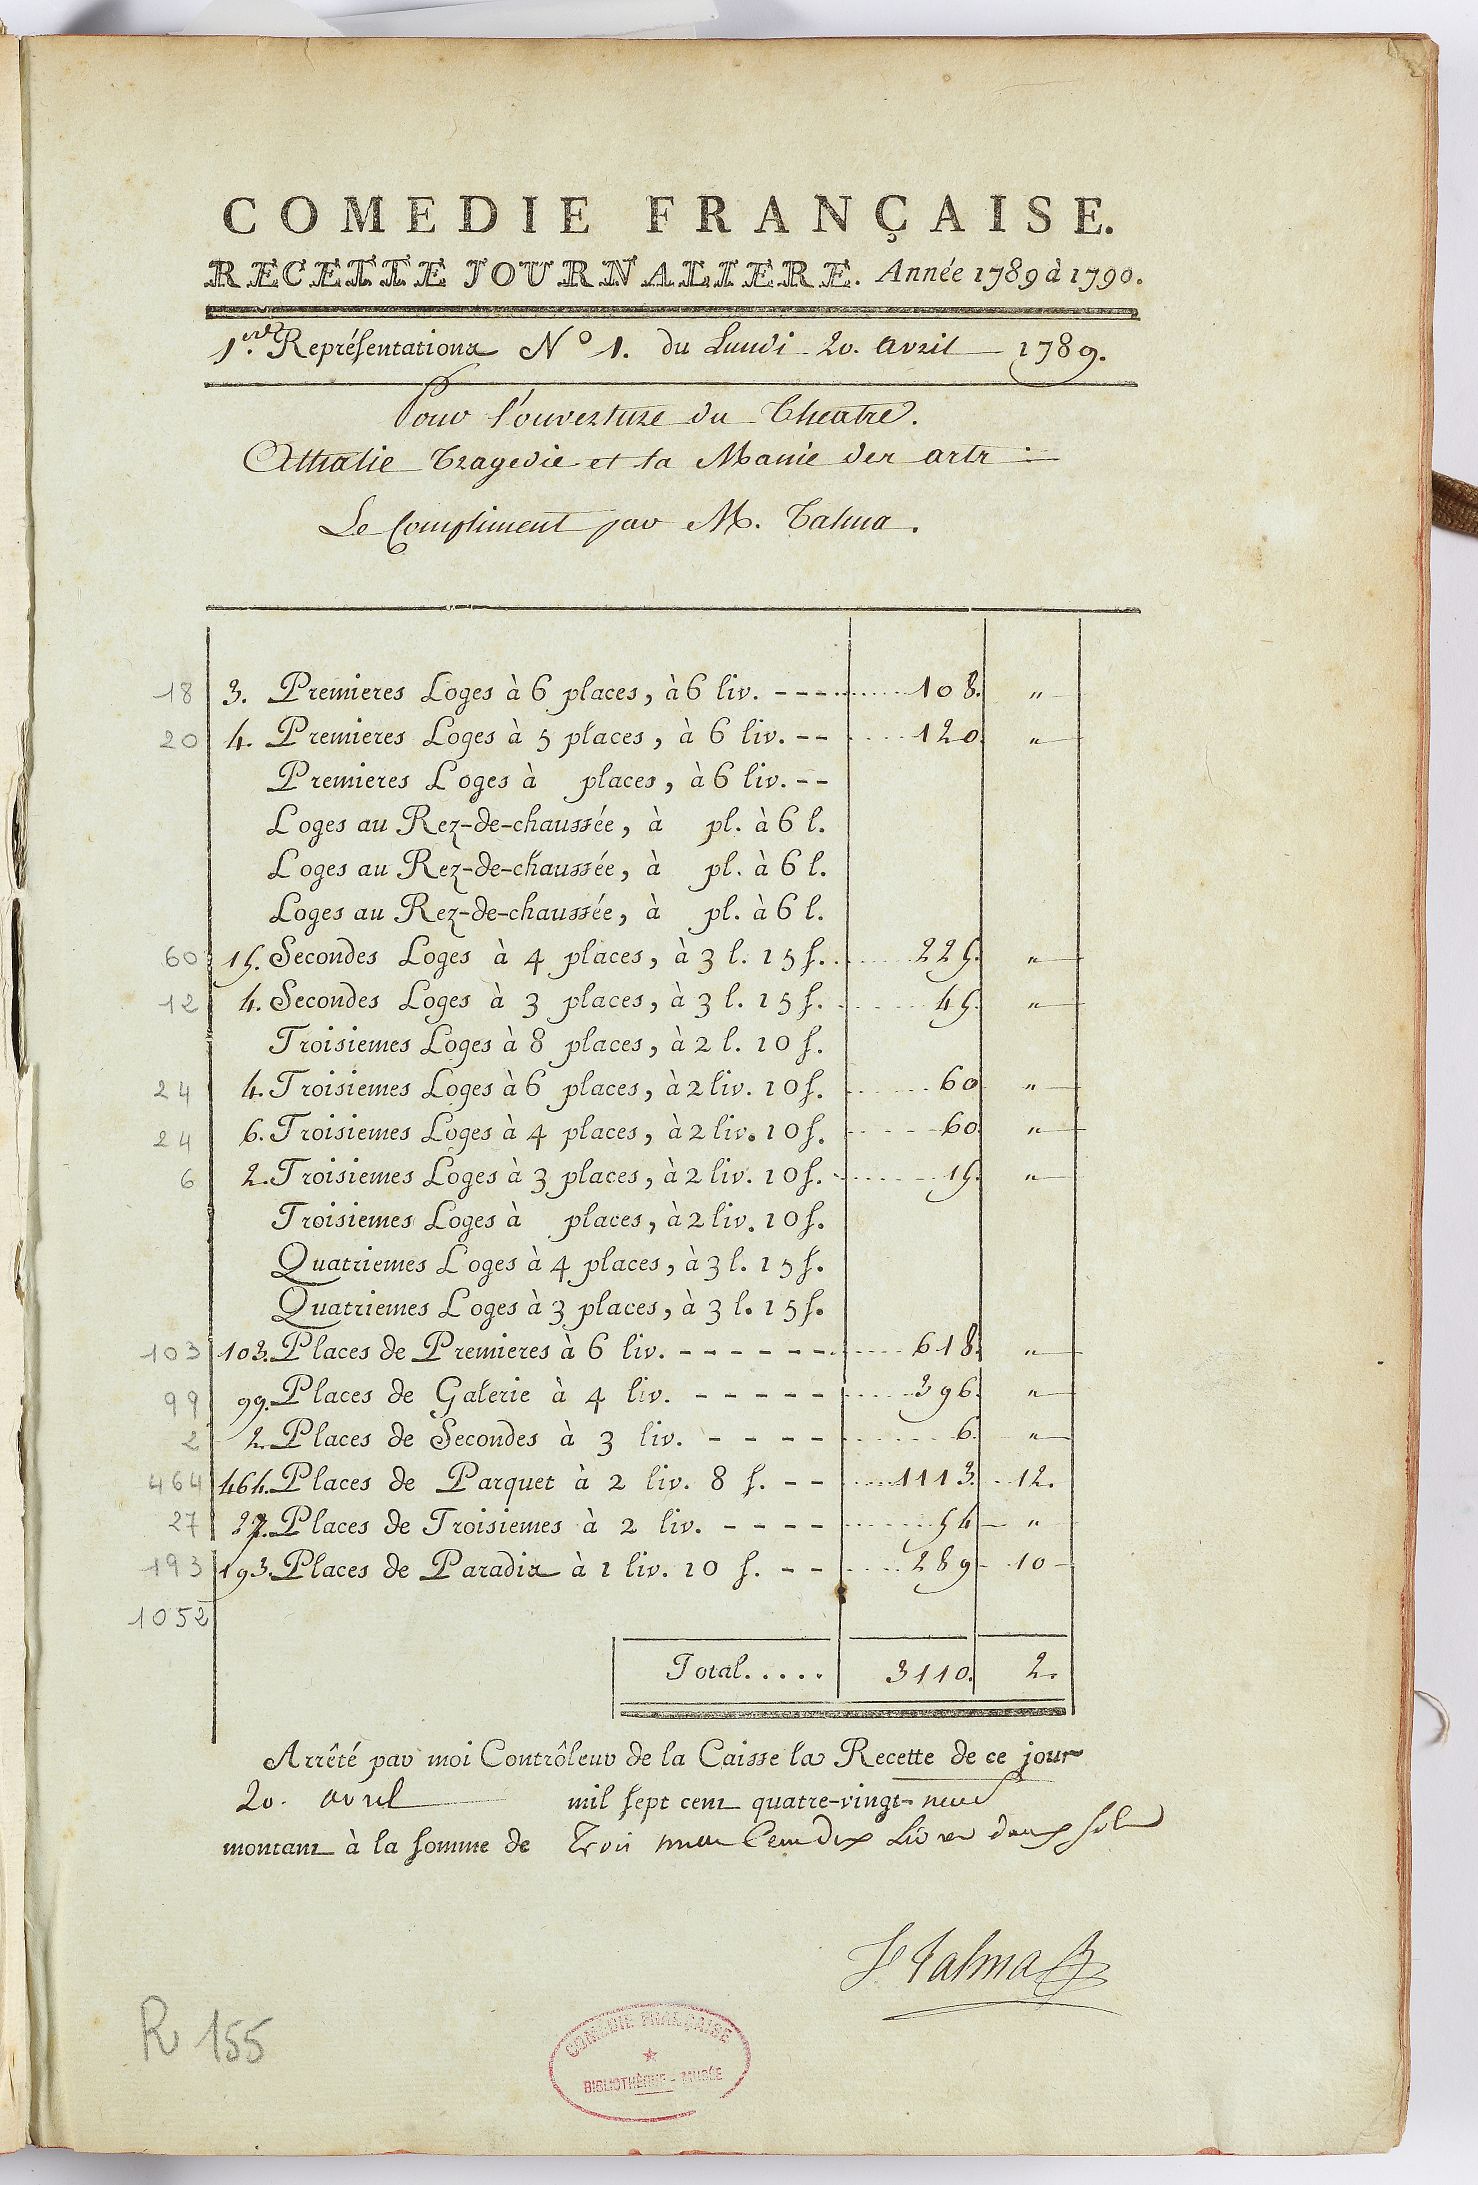 COMEDIE FRANÇAISE.
RECETTE JOURNALIERE. Année 1789 à 1790.
1.ere Repréſentations N° 1. du Lundi 20. avril 1789.
Pour l'ouverture du Theatre.
Athalie Tragedie et la Manie des arts :
Le Compliment par M. Talma.
18 3. Premieres Loges à 6 places, à 6 liv. ---- 108. "
20 4. Premieres Loges à 5 places, à 6 liv. -- 120. "
Premieres Loges à places, à 6 liv. --
Loges au Rez-de-chaussée, à pl. à 6 l.
Loges au Rez-de-chaussée, à pl. à 6 l.
Loges au Rez-de-chaussée, à pl. à 6 l.
60 15. Secondes Loges à 4 places, à 3 l. 15 ſ. 225. "
12 4. Secondes Loges à 3 places, à 3 l. 15 ſ. 45. "
Troisiemes Loges à 8 places, à 2 l. 10 ſ.
24 4. Troisiemes Loges à 6 places, à 2 liv. 10 ſ. 60 "
24 6. Troisiemes Loges à 4 places, à 2 liv. 10 ſ. 60. "
6 2. Troisiemes Loges à 3 places, à 2 liv. 10 ſ. 15. "
Troisiemes Loges à places, à 2 liv. 10 ſ.
Quatriemes Loges à 4 places, à 3 l. 15 ſ.
Quatriemes Loges à 3 places, à 3 l. 15 ſ.
103 103. Places de Premieres à 6 liv. ------ 618. "
99 99. Places de Galerie à 4 liv. ----- 396. "
2 2. Places de Secondes à 3 liv. ---- 6. "
464 464. Places de Parquet à 2 liv. 8 ſ. -- 1113. 12.
27 27. Places de Troisiemes à 2 liv. ---- 54 "
193 193. Places de Paradis à 1 liv. 10 ſ. -- 289 10
1052
Total..... 3110. 2.
Arrêté par moi Contrôleur de la Caisse la Recette de ce jour
20. avril mil ſept cent quatre-vingt-neuf
montant à la ſomme de Trois mille Cent dix Livres deux sols
Talma
R 155
COMÉDIE FRANÇAISE
BIBLIOTHÈQUE - MUSÉE